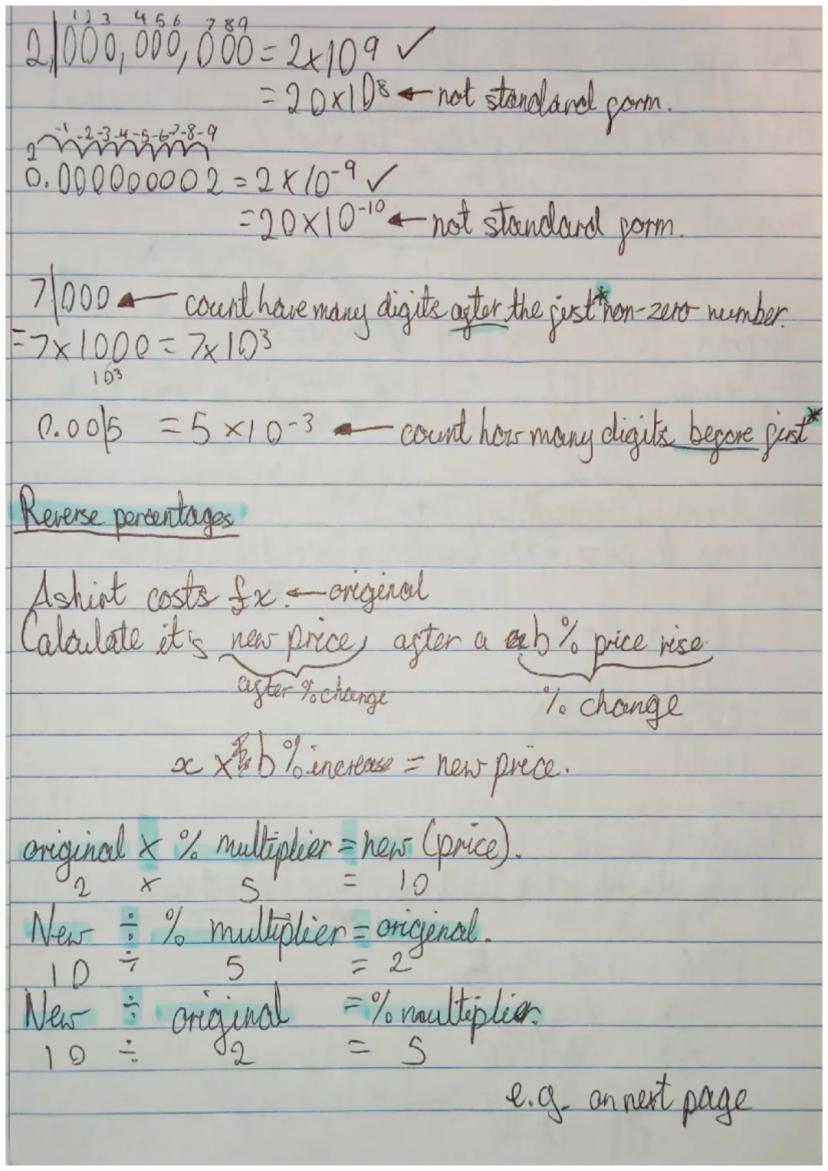 1 2 3 4 5 6 7 8 9
2,000,000,000 = 2×10⁹ ✓
= 20×10⁸ ← not standard form.
2 -1 -2 -3 -4 -5 -6 -7 -8 -9
0.000000002 = 2×10⁻⁹ ✓
= 20×10⁻¹⁰ ← not standard form.
7|000 ← count have many digits after the first *non-zero number.
= 7×1000 = 7×10³
10³
0.00|5 = 5×10⁻³ ← count how many digits before first*
Reverse percentages
A shirt costs £x. ← original
Calculate it's new price, after a b% price rise.
after % change
% change
x × b% increase = new price.
original × % multiplier = new (price).
2 × 5 = 10
New ÷ % multiplier = original.
10 ÷ 5 = 2
New ÷ original = % multiplier.
10 ÷ 2 = 5
e.g. on next page